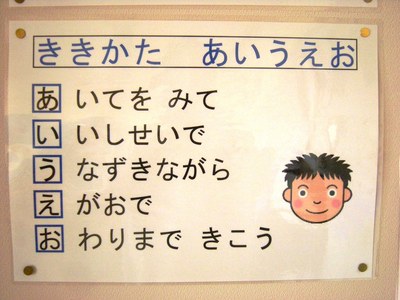 ききかた　あいうえお
あいてを みて
いいしせいで
うなずきながら
えがおで
おわりまで きこう